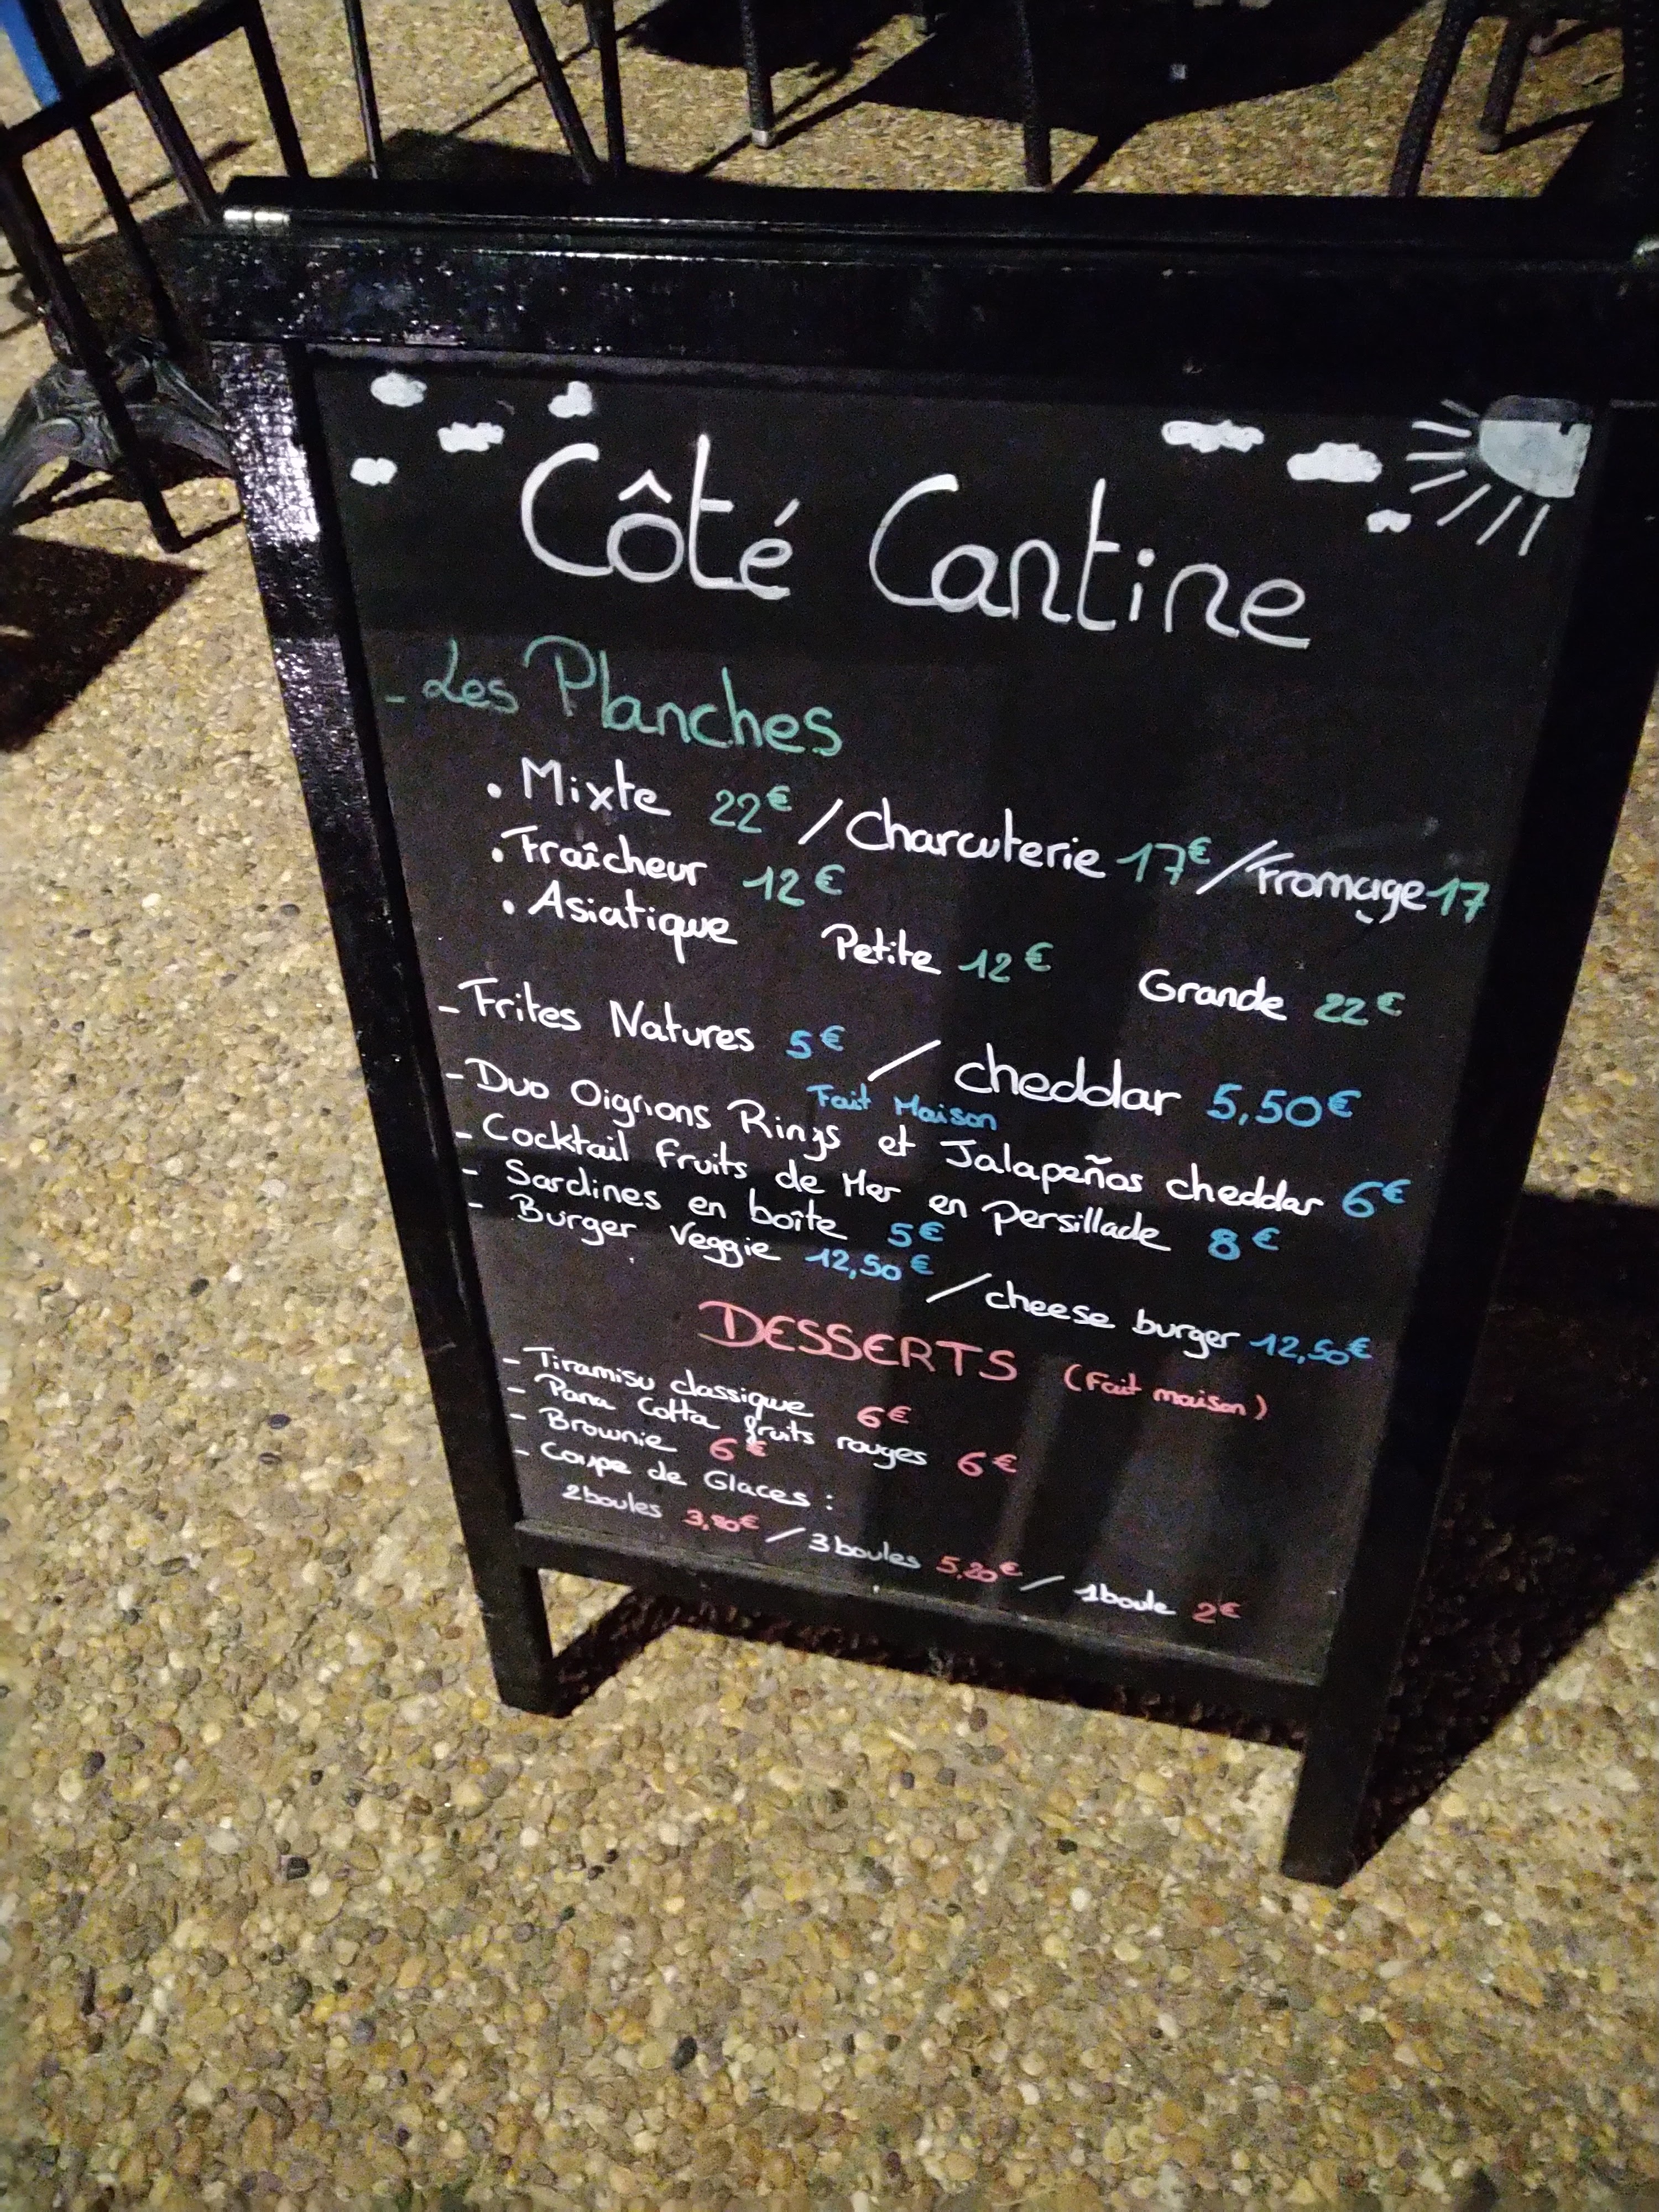 Côté Cantine
- Les Planches
. Mixte 22€ / Charcuterie 17€ / Fromage 17
. Fraîcheur 12€
. Asiatique Petite 12€ Grande 22€
- Frites Natures 5€ / cheddar 5,50€
Fait Maison
- Duo Oignons Rings et Jalapeños cheddar 6€
- Cocktail Fruits de Mer en Persillade 8€
- Sardines en boîte 5€
- Burger Veggie 12,50€ / cheese burger 12,50€
DESSERTS (Fait maison)
- Tiramisu classique 6€
- Pana Cotta fruits rouges 6€
- Brownie 6€
- Coupe de Glaces :
2 boules 3,80€ / 3 boules 5,20€ / 1 boule 2€